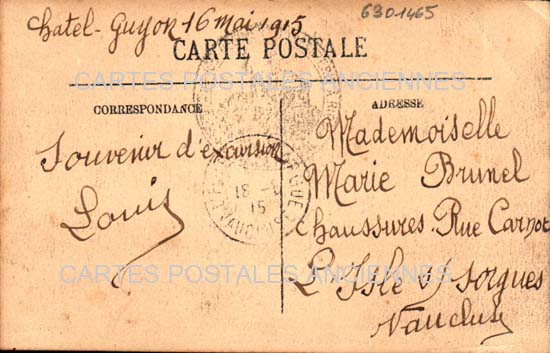 6301465
Chatel-Guyon 16 Mai 1915
CARTE POSTALE
CARTES POSTALES ANCIENNES
CORRESPONDANCE
ADRESSE
Souvenir d'excursion
Louis
18
15
VAUCLUSE
Mademoiselle
Marie Brunel
Chaussures Rue Carnot
L'Isle s/ Sorgues
Vaucluse
CARTES POSTALES ANCIENNES